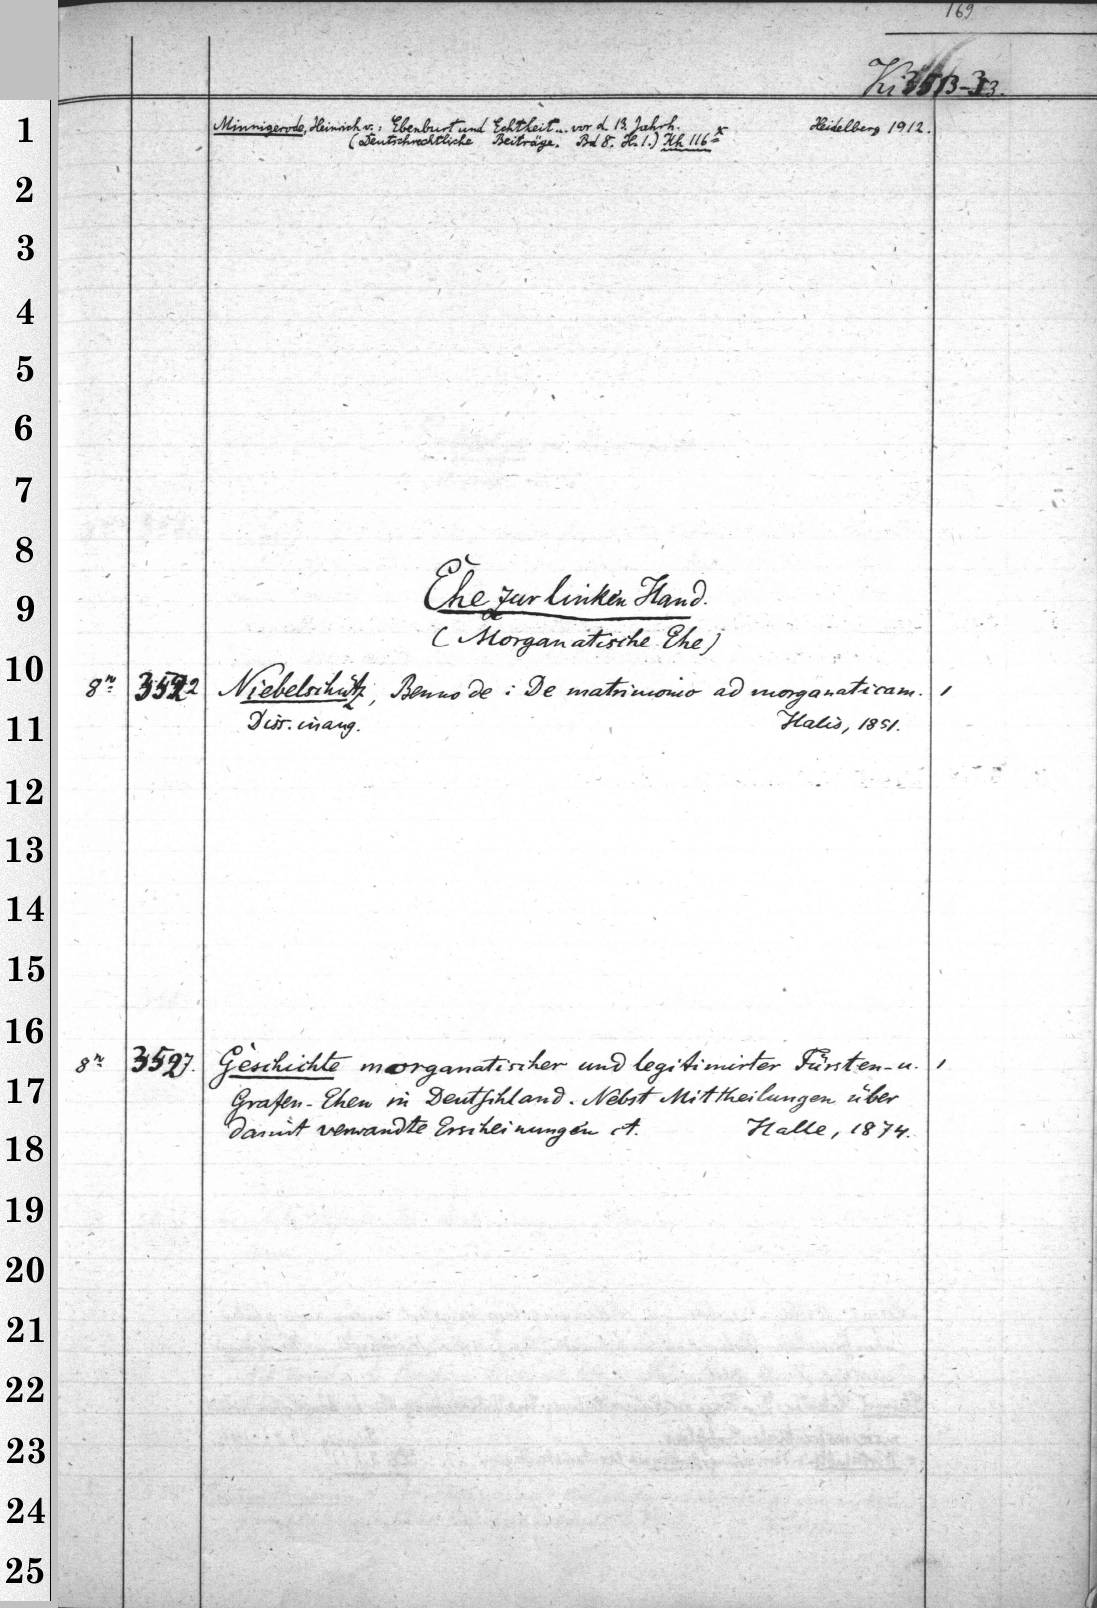 169
Ki
1
Minnigerode, Heinrich v.: Ebenburt und Echtheit... vor d. 13. Jahrh. Heidelberg 1912.
(Deutschrechtliche Beiträge. Bd 8. H. 1.) Kh 116 x
2
3
4
5
6
7
8
Ehe zur linken Hand.
9
(Morganatische Ehe)
10
8º 3522 Niebelschütz, Benno de: De matrimonio ad morganaticam.
11
Diss. inaug. Halis, 1851.
12
13
14
15
16
8º 3527. Geschichte morganatischer und legitimirter Fürsten- u.
17
Grafen-Ehen in Deutschland. Nebst Mittheilungen über
damit verwandte Erscheinungen Halle, 1874.
18
19
20
21
22
23
24
25